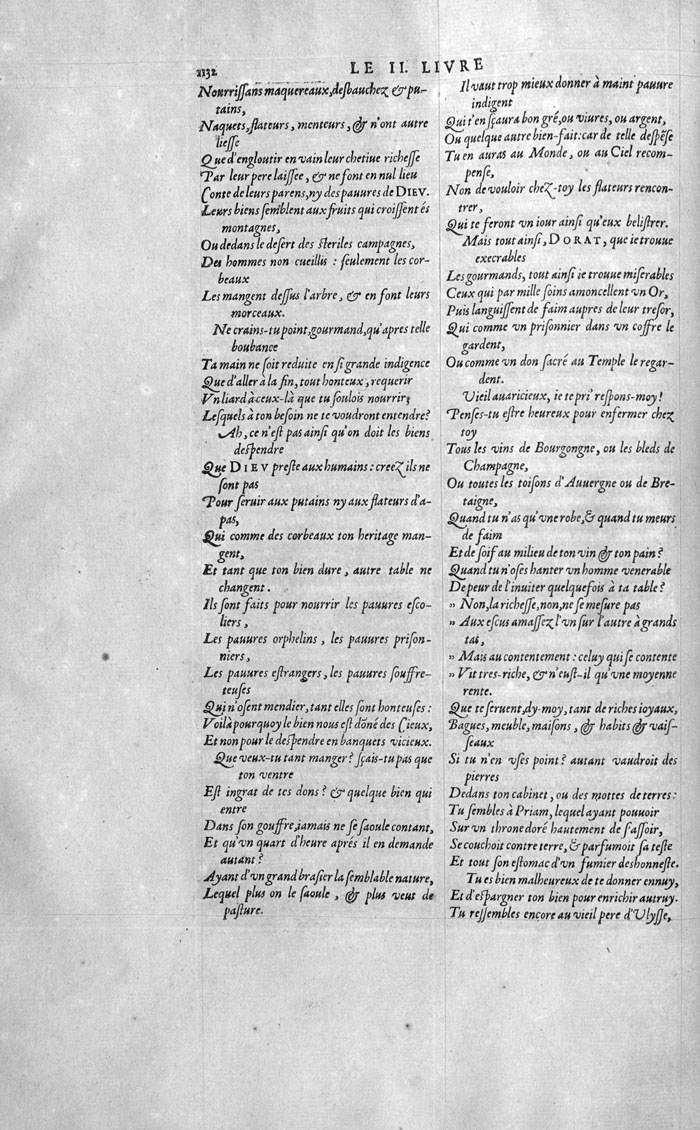 1132
LE II. LIVRE
Nourrissans maquereaux, desbauchez & pu-
tains,
Naquets, flateurs, menteurs, & n'ont autre
liesse
Que d'engloutir en vain leur chetiue richesse
Par leur pere laissee, & ne font en nul lieu
Conte de leurs parens, ny des pauures de DIEV.
Leurs biens semblent aux fruits qui croissent és
montagnes,
Ou dedans le desert des steriles campagnes,
Des hommes non cueillis : seulement les cor-
beaux
Les mangent dessus l'arbre, & en font leurs
morceaux.
Ne crains-tu point, gourmand, qu'apres telle
boubance
Ta main ne soit reduite en si grande indigence
Que d'aller à la fin, tout honteux, requerir
Vn liard à ceux-là que tu soulois nourrir,
Lesquels à ton besoin ne te voudront entendre?
Ah, ce n'est pas ainsi qu'on doit les biens
despendre
Que DIEV preste aux humains : creez ils ne
sont pas
Pour seruir aux putains ny aux flateurs d'a-
pas,
Qui comme des corbeaux ton heritage man-
gent,
Et tant que ton bien dure, autre table ne
changent.
Ils sont faits pour nourrir les pauures esco-
liers,
Les pauures orphelins, les pauures prison-
niers,
Les pauures estrangers, les pauures souffre-
teuses
Qui n'osent mendier, tant elles sont honteuses :
Voilà pourquoy le bien nous est dōné des Cieux,
Et non pour le despendre en banquets vicieux.
Que veux-tu tant manger? sçais-tu pas que
ton ventre
Est ingrat de tes dons? & quelque bien qui
entre
Dans son gouffre, iamais ne se saoule contant,
Et qu'vn quart d'heure aprés il en demande
autant?
Ayant d'vn grand brasier la semblable nature,
Lequel plus on le saoule, & plus veut de
pasture.
Il vaut trop mieux donner à maint pauure
indigent
Qui t'en sçaura bon gré, ou viures, ou argent,
Ou quelque autre bien-fait: car de telle despēse
Tu en auras au Monde, ou au Ciel recom-
pense,
Non de vouloir chez-toy les flateurs rencon-
trer,
Qui te feront vn iour ainsi qu'eux belistrer.
Mais tout ainsi, DORAT, que ie trouue
execrables
Les gourmands, tout ainsi ie trouue miserables
Ceux qui par mille soins amoncellent vn Or,
Puis languissent de faim aupres de leur tresor,
Qui comme vn prisonnier dans vn coffre le
gardent,
Ou comme vn don sacré au Temple le regar-
dent.
Vieil auaricieux, ie te pri' respons-moy!
Penses-tu estre heureux pour enfermer chez
toy
Tous les vins de Bourgongne, ou les bleds de
Champagne,
Ou toutes les toisons d'Auuergne ou de Bre-
taigne,
Quand tu n'as qu'vne robe, & quand tu meurs
de faim
Et de soif au milieu de ton vin & ton pain?
Quand tu n'oses hanter vn homme venerable
De peur de l'inuiter quelquefois à ta table?
" Non, la richesse, non, ne se mesure pas
" Aux escus amassez l'vn sur l'autre à grands
tas,
" Mais au contentement : celuy qui se contente
" Vit tres-riche, & n'eust-il qu'vne moyenne
rente.
Que te seruent, dy-moy, tant de riches ioyaux,
Bagues, meuble, maisons, & habits & vais-
seaux
Si tu n'en vses point? autant vaudroit des
pierres
Dedans ton cabinet, ou des mottes de terres :
Tu sembles à Priam, lequel ayant pouuoir
Sur vn throne doré hautement de s'assoir,
Se couchoit contre terre, & parfumoit sa teste
Et tout son estomac d'vn fumier deshonneste.
Tu es bien malheureux de te donner ennuy,
Et d'espargner ton bien pour enrichir autruy.
Tu ressembles encore au vieil pere d'Vlysse,